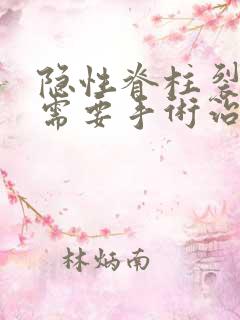 隐性脊柱裂
需要手術治
林炳南